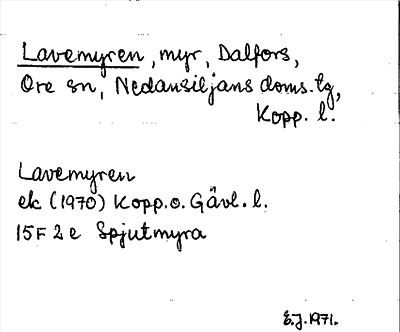 Lavemyren, myr, Dalfors,
Ore sn, Nedansiljans doms. tg,
Kopp. l.
Lavemyren
ek (1970) Kopp. o. Gävl. l.
15F 2 e Spjutmyra
E.J. 1971.